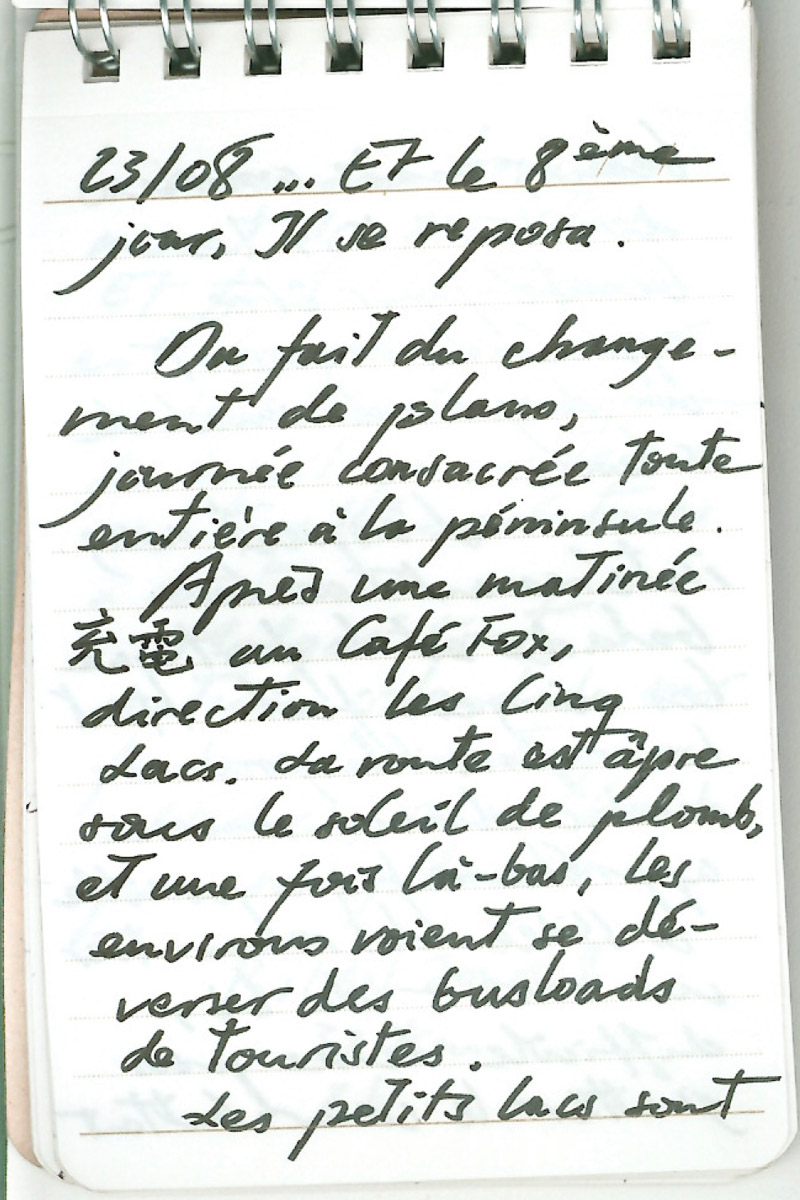 23/08 ... Et le 8ème
jour, Il se reposa.
On fait du change-
ment de plans,
journée consacrée toute
entière à la péninsule.
Après une matinée
充電 au Café Fox,
direction les Cinq
Lacs. La route est âpre
sous le soleil de plomb,
et une fois là-bas, les
environs voient se dé-
verser des busloads
de touristes.
Les petits lacs sont